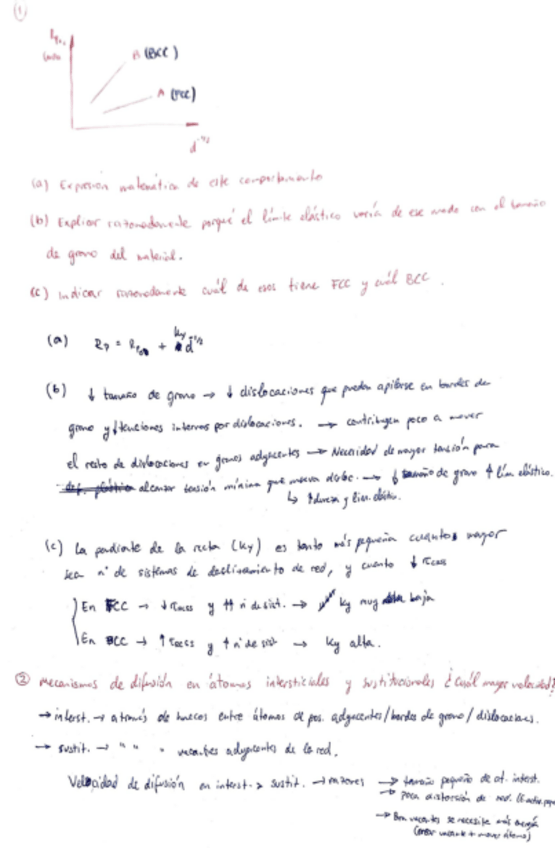 ①
B (BCC)
A (FCC)
d^-1/2
(a) Expresión matemática de este comportamiento
(b) Explicar razonadamente porqué el límite elástico varía de ese modo con el tamaño
de grano del material.
(c) Indicar razonadamente cuál de esos tiene FCC y cuál BCC.
(a) Rp = Rp₀ + ky d^-1/2
(b) ↓ tamaño de grano → ↓ dislocaciones que puedan apilarse en bordes de
grano y ↓ tensiones internas por dislocaciones. → contribuyen poco a mover
el resto de dislocaciones en granos adyacentes → Necesidad de mayor tensión para
alcanzar tensión mínima que mueva disloc. → ↓ tamaño de grano ↑ lím elástico.
↳ ↑ dureza y lim. elástic.
(c) La pendiente de la recta (ky) es tanto más pequeña cuanto mayor
sea nº de sistemas de deslizamiento de red, y cuanto ↓ τCRSS
En FCC → ↓ τCRSS y ↑↑ nº de sist. → ky muy baja
En BCC → ↑ τCRSS y ↑ nº de sist → ky alta.
② Mecanismos de difusión en átomos intersticiales y sustitucionales ¿Cuál mayor velocidad?
→ interst. → a través de huecos entre átomos de pos. adyacentes/bordes de grano/dislocaciones.
→ sustit. → " " " vacantes adyacentes de la red.
Velocidad de difusión en interst. > sustit. → razones → tamaño pequeño de at. interst.
→ poca distorsión de red.
→ vacantes se necesita más energía
(crear vacante + mover átomo)